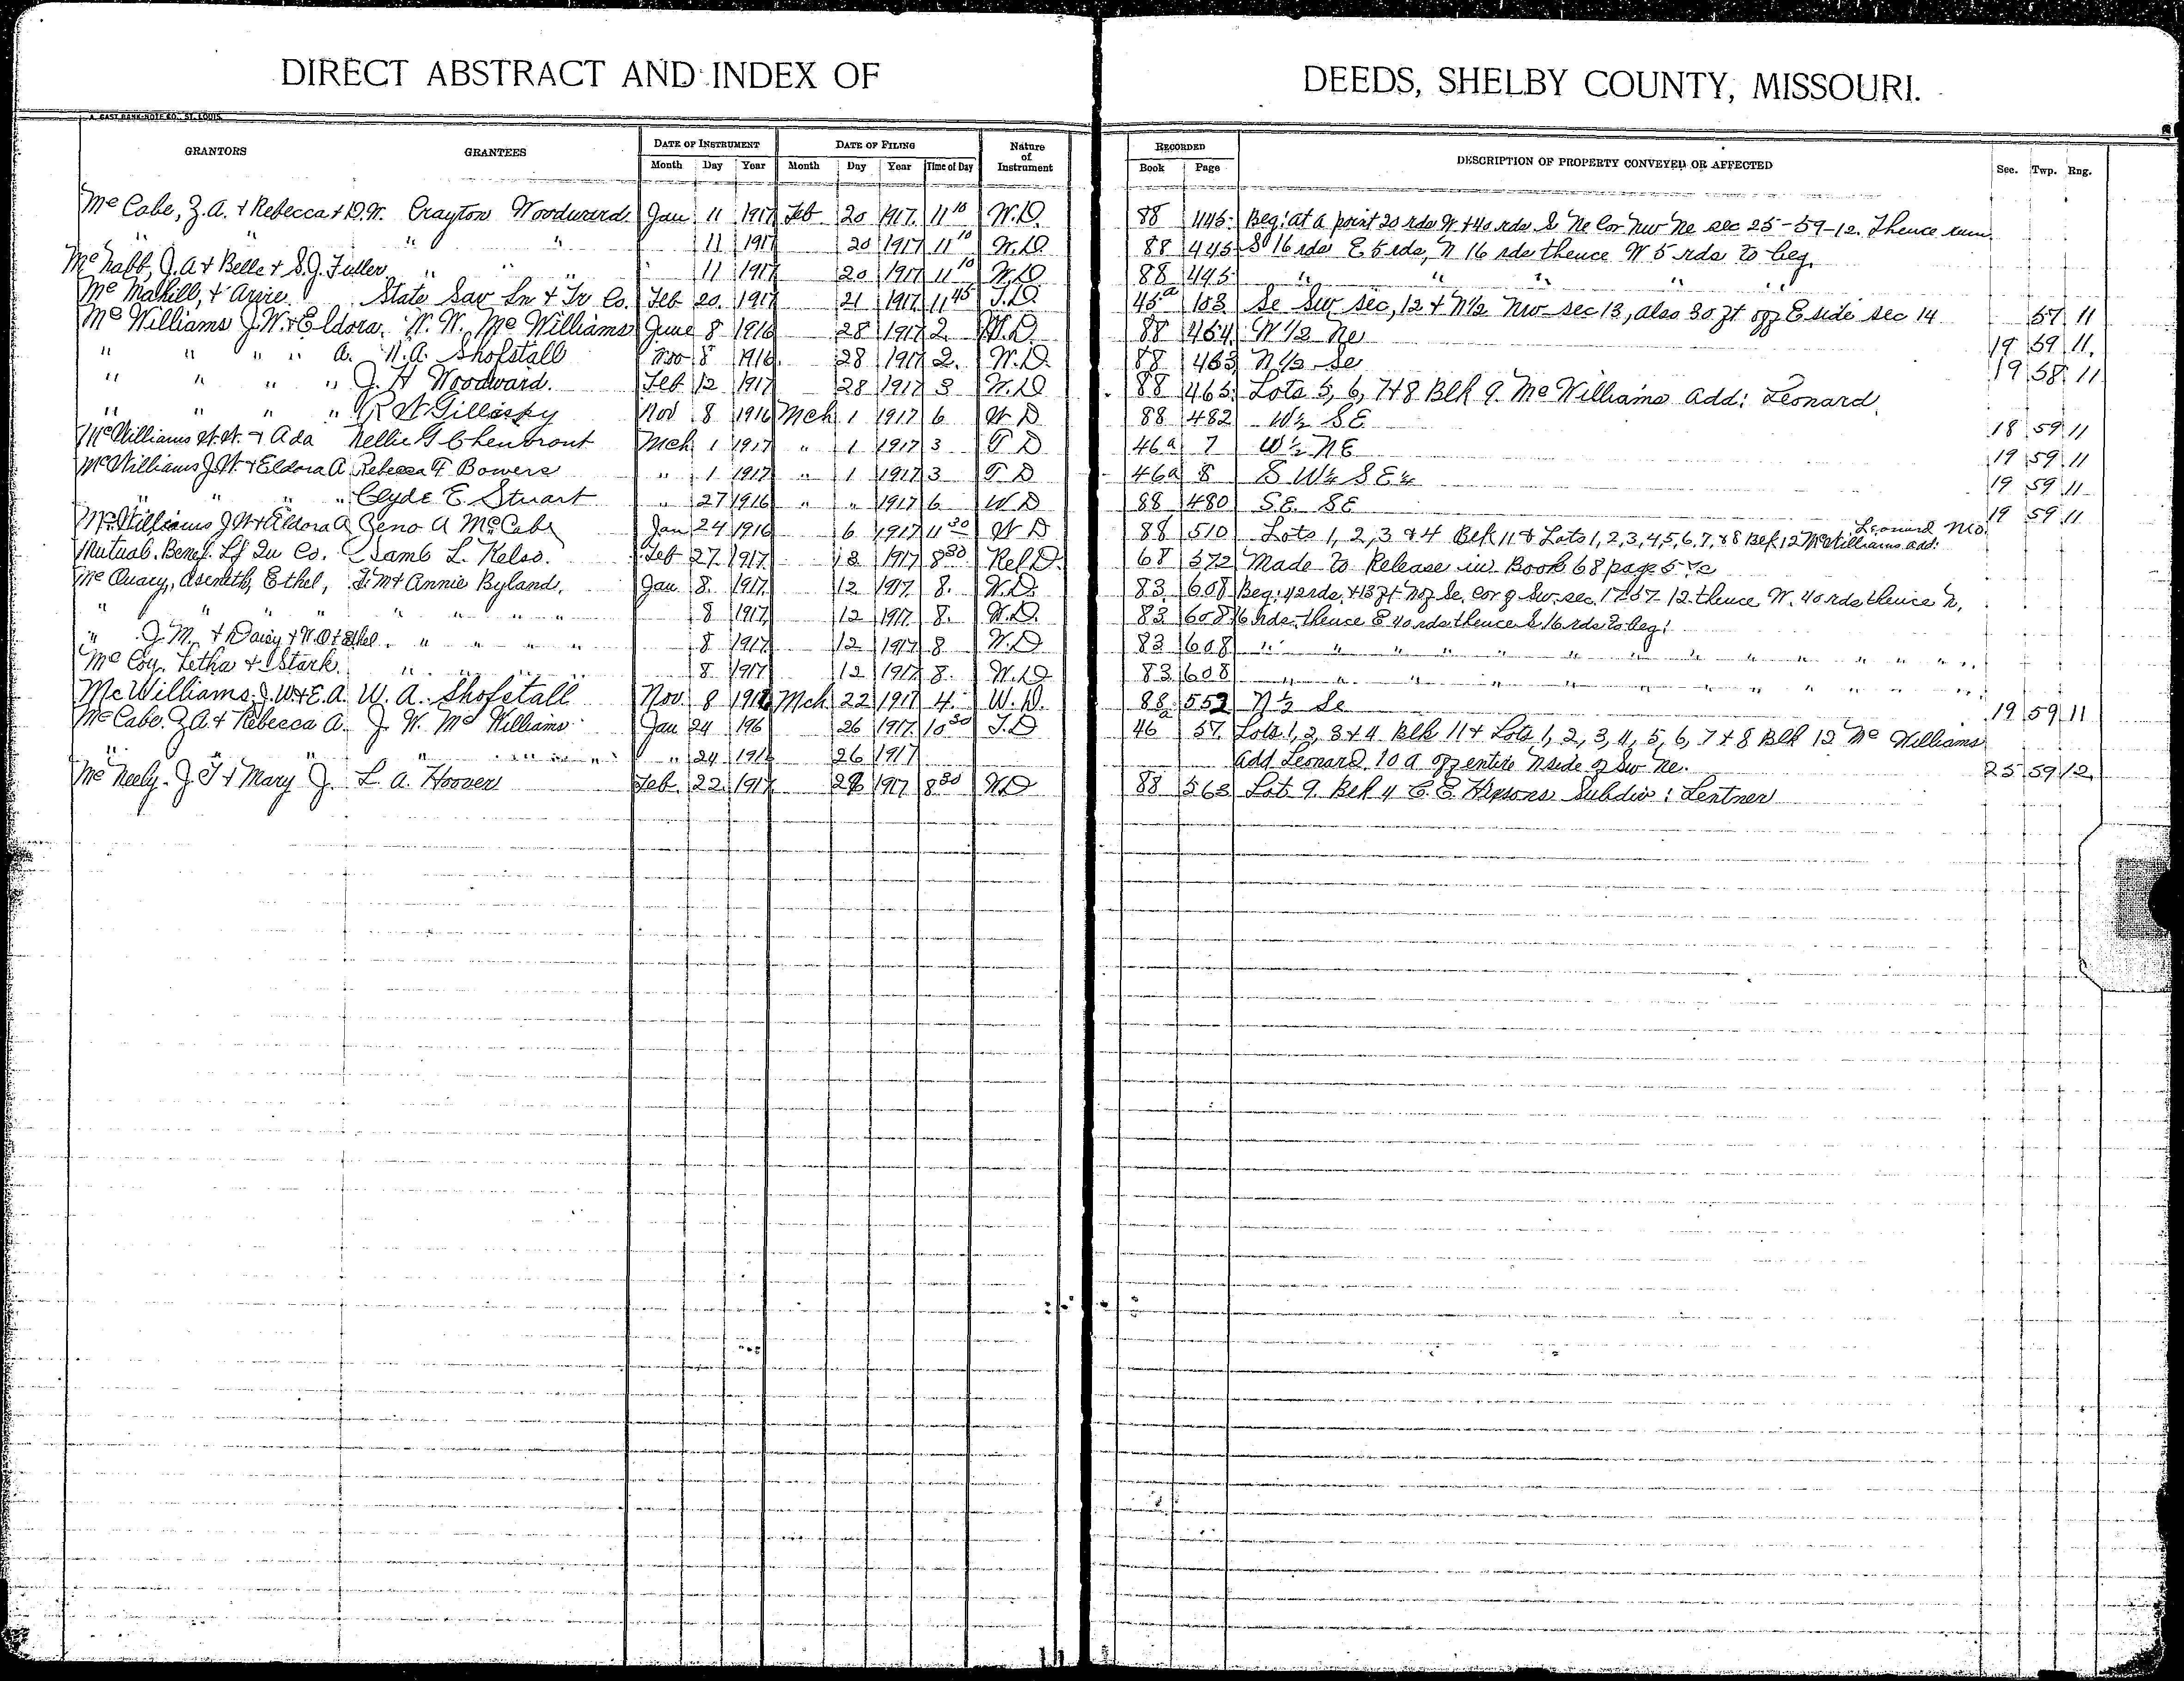 DIRECT ABSTRACT AND INDEX OF DEEDS, SHELBY COUNTY, MISSOURI.
A. GAST BANK-NOTE CO., ST. LOUIS.
GRANTORS GRANTEES DATE OF INSTRUMENT DATE OF FILING Nature of Instrument RECORDED DESCRIPTION OF PROPERTY CONVEYED OR AFFECTED Sec. Twp. Rng.
Month Day Year Month Day Year Time of Day Book Page
McCabe, Z.A. + Rebecca + D.W. Crayton Woodward Jan 11 1917 Feb 20 1917 11 10 W.D. 88 445 Beg: at a point 20 rds W + 40 rds S Ne Cor Nw Ne sec 25-59-12. Thence run
" " " " 11 1917 20 1917 11 10 W.D. 88 445 S 16 rds E 5 rds, N 16 rds thence W 5 rds to beg.
McNabb, J.A + Belle + S.J. Fuller " " " 11 1917 20 1917 11 10 W.D. 88 445 " " " "
McMahill, + Arvie State Sav Ln + Tr Co. Feb 20 1917 21 1917 11 45 T.D. 45a 183 Se Sw sec, 12 + N1/2 Nw sec 13, also 30 ft off E side sec 14 57 11
McWilliams J.W. + Eldora W. W. McWilliams June 8 1916 28 1917 2 W.D. 88 464 W 1/2 Ne 19 59 11
" " " " a. W.A. Shofstall Nov 8 1916 28 1917 2. W.D. 88 463 N 1/2 Se 19 58 11
" " " " J. H Woodward. Feb 12 1917 28 1917 3 W.D 88 465 Lots 5, 6, 7 + 8 Blk 9. McWilliams add: Leonard
" " " " R W Gillaspy Nov 8 1916 Mch 1 1917 6 W D 88 482 W 1/2 SE 18 59 11
McWilliams W.W. + Ada Nellie G Chenbront Mch 1 1917 " 1 1917 3 T D 46a 7 W 1/2 NE 19 59 11
McWilliams J.W. + Eldora A Rebecca F Bowers " 1 1917 " 1 1917 3 T D 46a 8 S W 1/4 S E 1/4 19 59 11
" " " " Clyde E Stuart " 27 1916 " " 1917 6 W D 88 480 SE SE 19 59 11
McWilliams J W + Eldora A Zeno A McCabe Jan 24 1916 6 1917 11 30 W D 88 510 Lots 1, 2, 3 & 4 Blk 11 & Lots 1, 2, 3, 4, 5, 6, 7, & 8 Blk 12 McWilliams add: Leonard Mo.
Mutual Benef. Lf In Co. Samb L. Kelso. Feb 27 1917 8 30 Rel D. 68 572 Made to Release in Book 68 page
McQuary, Aseneth, Ethel, + Annie Byland. Jan 8. 1917 12 1917 8. W.D. 83 608 Beg: 42 rds. + 13 ft N of Se. cor of Sw. sec. 57 12 thence W. 40 rds thence N,
" " " " " " " " 8 1917 12 1917 8. W.D. 83 608 16 rds. thence E 40 rds thence S 16 rds to beg:
" J.M. + Daisy + W.O + Ethel " " " " 8 1917 12 1917 8 W.D 83 608 " " " " " " " "
McCoy, Letha + Stark. " " " " 8 1917 12 1917 8. W.D 83 608 " " " " " " " "
McWilliams, J. W. + E. A. W. A. Shofstall Nov 8 1916 Mch 22 1917 4. W. D. 88 552 N 1/2 Se 19 59 11
McCabe. Z.A + Rebecca A. J. W. McWilliams Jan 24 196 26 1917 10 30 T.D 46a 57 Lots 1, 2, 3 + 4 Blk 11 + Lots 1, 2, 3, 4, 5, 6, 7 + 8 Blk 12 McWilliams
" " " " " " " " 24 1916 26 1917 add Leonard. 10 a off entire N side of Sw Ne. 25 59 12
McNeely. J T + Mary J. L. A. Hoover Feb. 22 1917 28 1917 8 30 W.D 88 563 Lot 9. Blk 4 C. E. Subdiv: Lentner